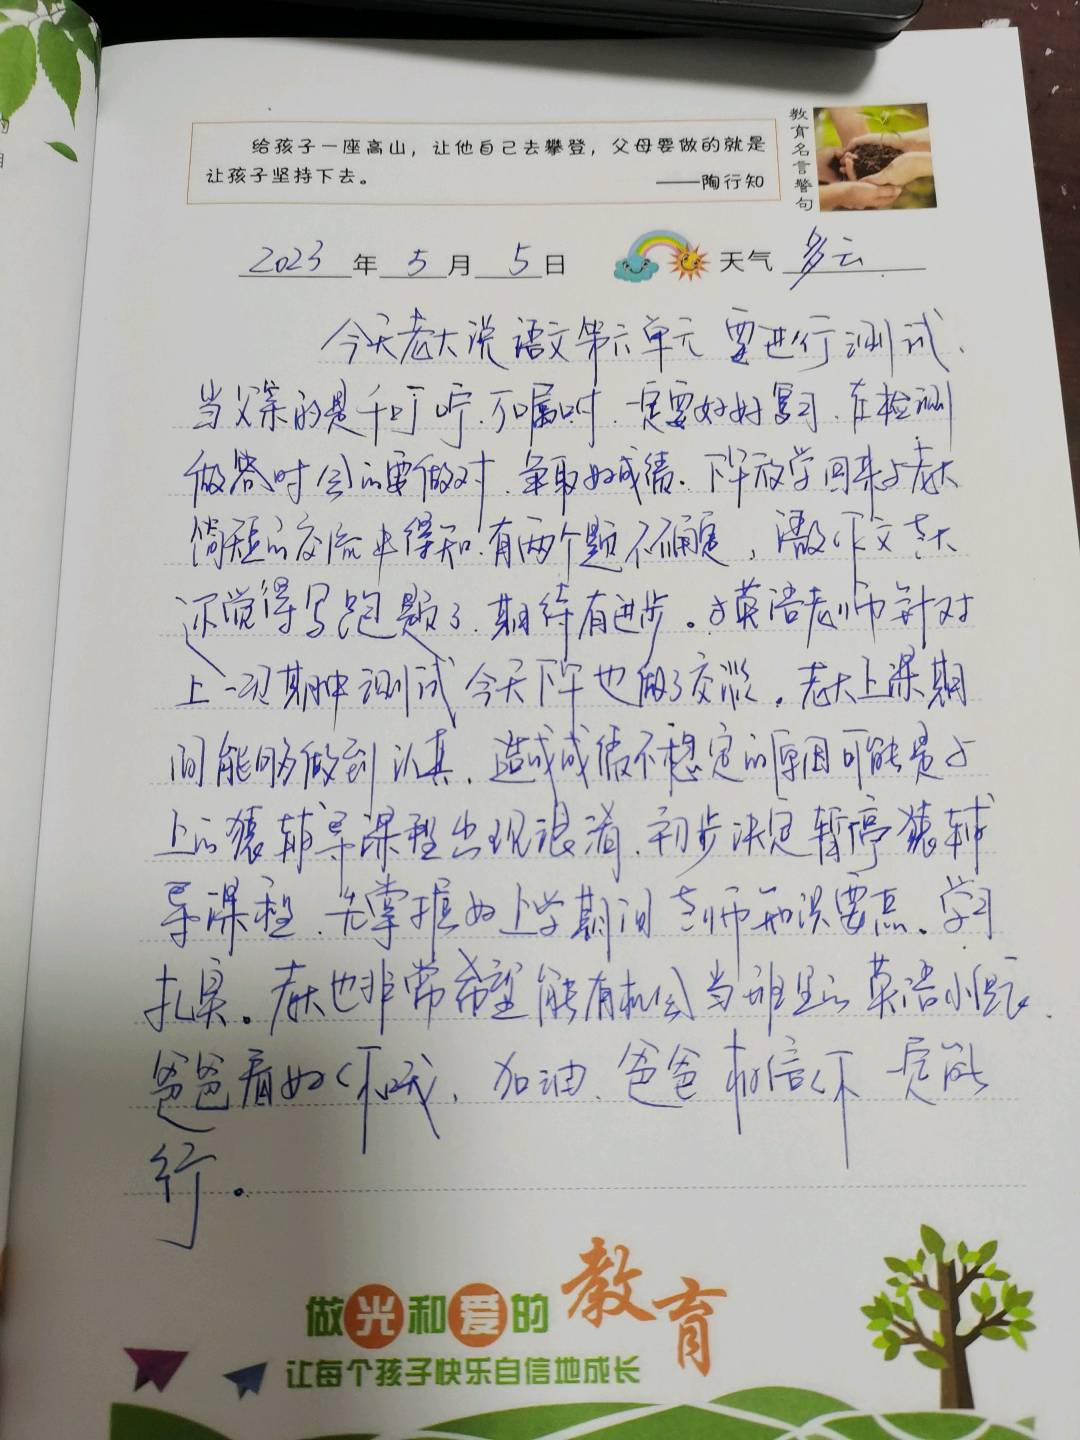 给孩子一座高山，让他自己去攀登，父母要做的就是
让孩子坚持下去。
——陶行知
教育名言警句
2023年5月5日 天气 多云
今天老大说语文第六单元要进行测试、
当父亲的是千叮咛、万嘱咐、一定要好好复习、在检测
做卷时会的要做对、争取好成绩、下午放学回来与老大
简短的交流中得知、有两个题不确定，语文作文老大
还觉得写跑题了、期待有进步。与英语老师针对
上一次期中测试今天下午也做了交谈。老大上课期
间能够做到认真、造成成绩不稳定的原因可能是与
上的猿辅导课程出现混淆、初步决定暂停猿辅
导课程、先掌握好上学期间老师知识要点。学习
扎实。老大也非常希望能有机会当班里的英语小组长、
爸爸看好你哦，加油、爸爸相信你一定能
行。
做光和爱的教育
让每个孩子快乐自信地成长